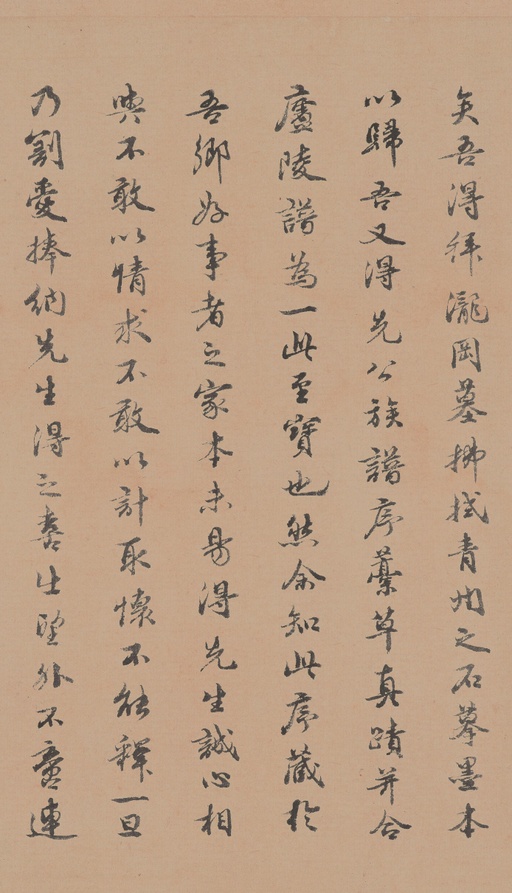 矣吾得拜瀧岡墓拂拭青州之石摹墨本
以歸吾又得先公族譜序藁草真蹟并合
廬陵譜為一此至寶也然余知此序藏於
吾鄉好事者之家本未易得先生誠心相
與不敢以情求不敢以計取懷不能釋一旦
乃割愛捧納先生得之喜出望外不啻連